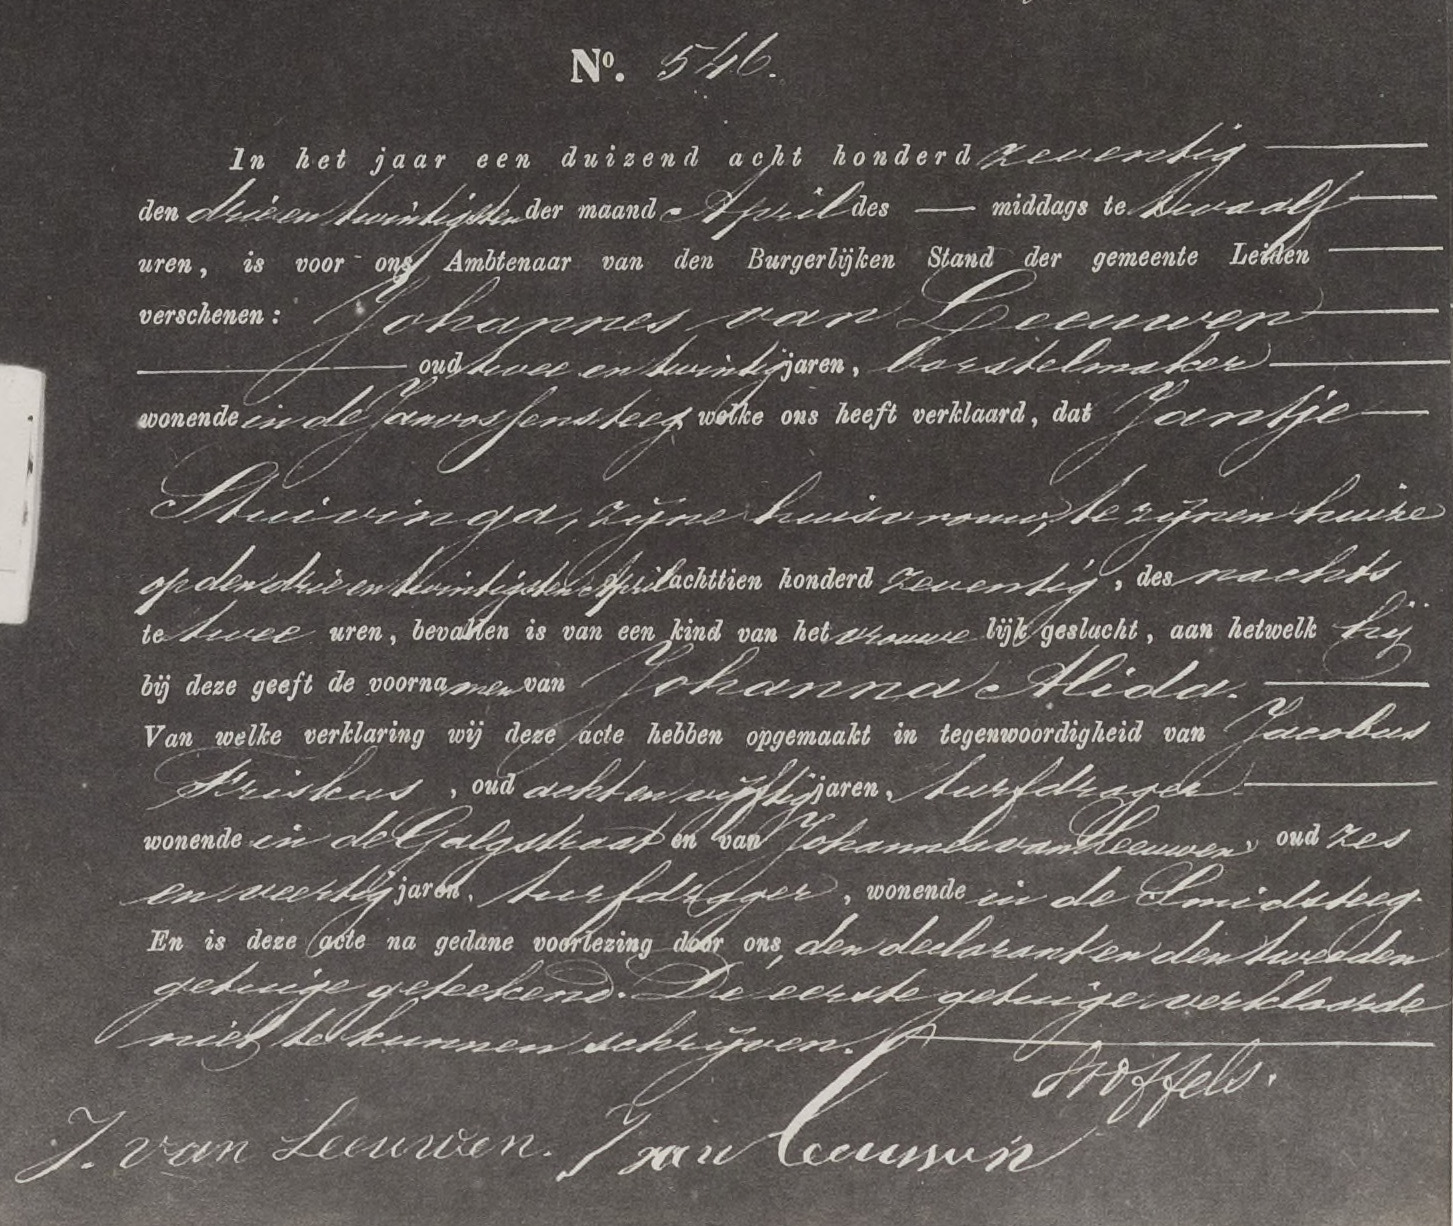 No. 546.
In het jaar een duizend acht honderd zeventig
den drieentwintigsten der maand April des — middags te twaalf
uren, is voor ons Ambtenaar van den Burgerlijken Stand der gemeente Leiden
verschenen: Johannes van Leeuwen
oud twee en twintig jaren, borstelmaker
wonende in de Janvossensteeg welke ons heeft verklaard, dat Jantje
Stuivinga, zijne huisvrouw, te zijnen huize
op den drieentwintigsten April achttien honderd zeventig, des nachts
te twee uren, bevallen is van een kind van het vrouwelijk geslacht, aan hetwelk hij
bij deze geeft de voornamen van Johanna Alida.
Van welke verklaring wij deze acte hebben opgemaakt in tegenwoordigheid van Jacobus
Friskus, oud achtenvijftig jaren, turfdrager
wonende in de Galgstraat en van Johannes van Leeuwen, oud zes
en veertig jaren, turfdrager, wonende in de Smidsteeg.
En is deze acte na gedane voorlezing door ons, den declarant en den tweeden
getuige geteekend. De eerste getuige verklaarde
niet te kunnen schrijven.
Stoffels.
J. van Leeuwen. J van Leeuwen